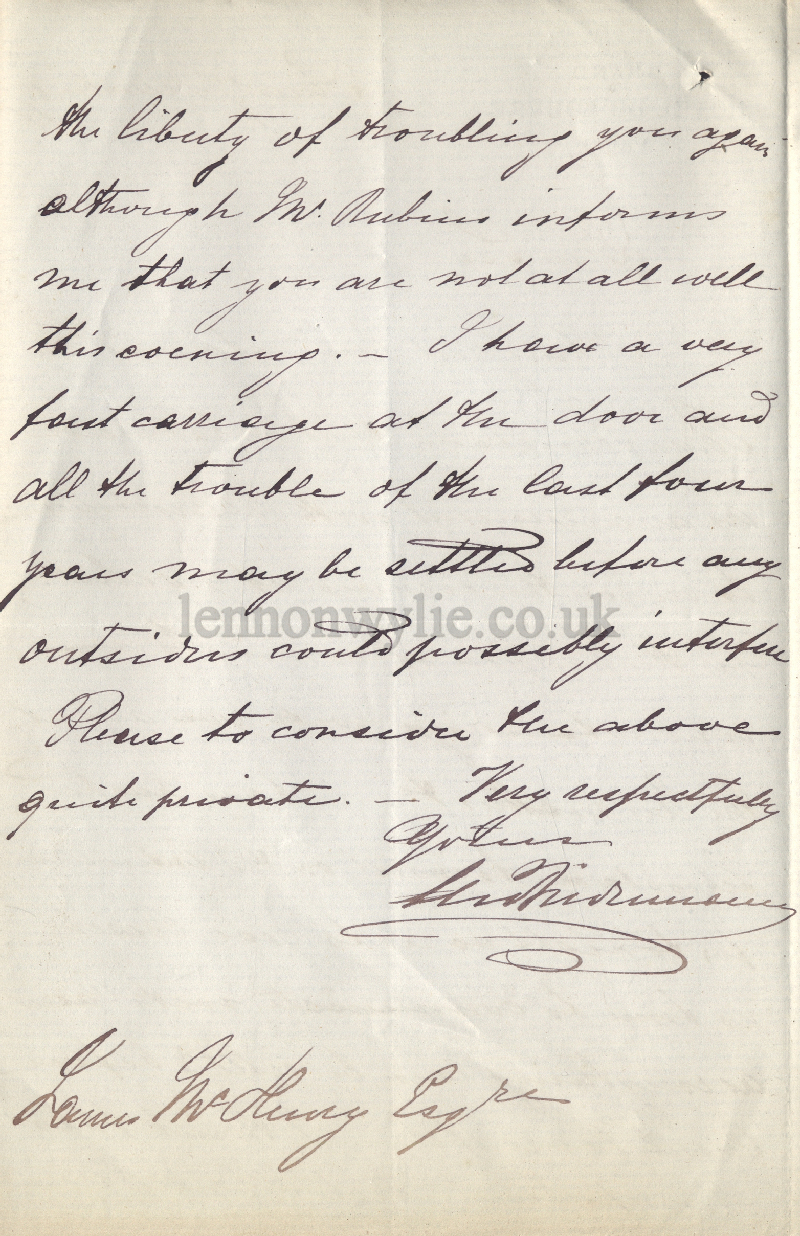 the liberty of troubling you again
although Mr. Rubino informs
me that you are not at all well
this evening. — I have a very
fast carriage at the door and
all the trouble of the last four
years may be settled before any
lennonwylie.co.uk
outsiders could possibly interfere
Please to consider the above
quite private. — Very respectfully
Yours
James McHenry Esqre